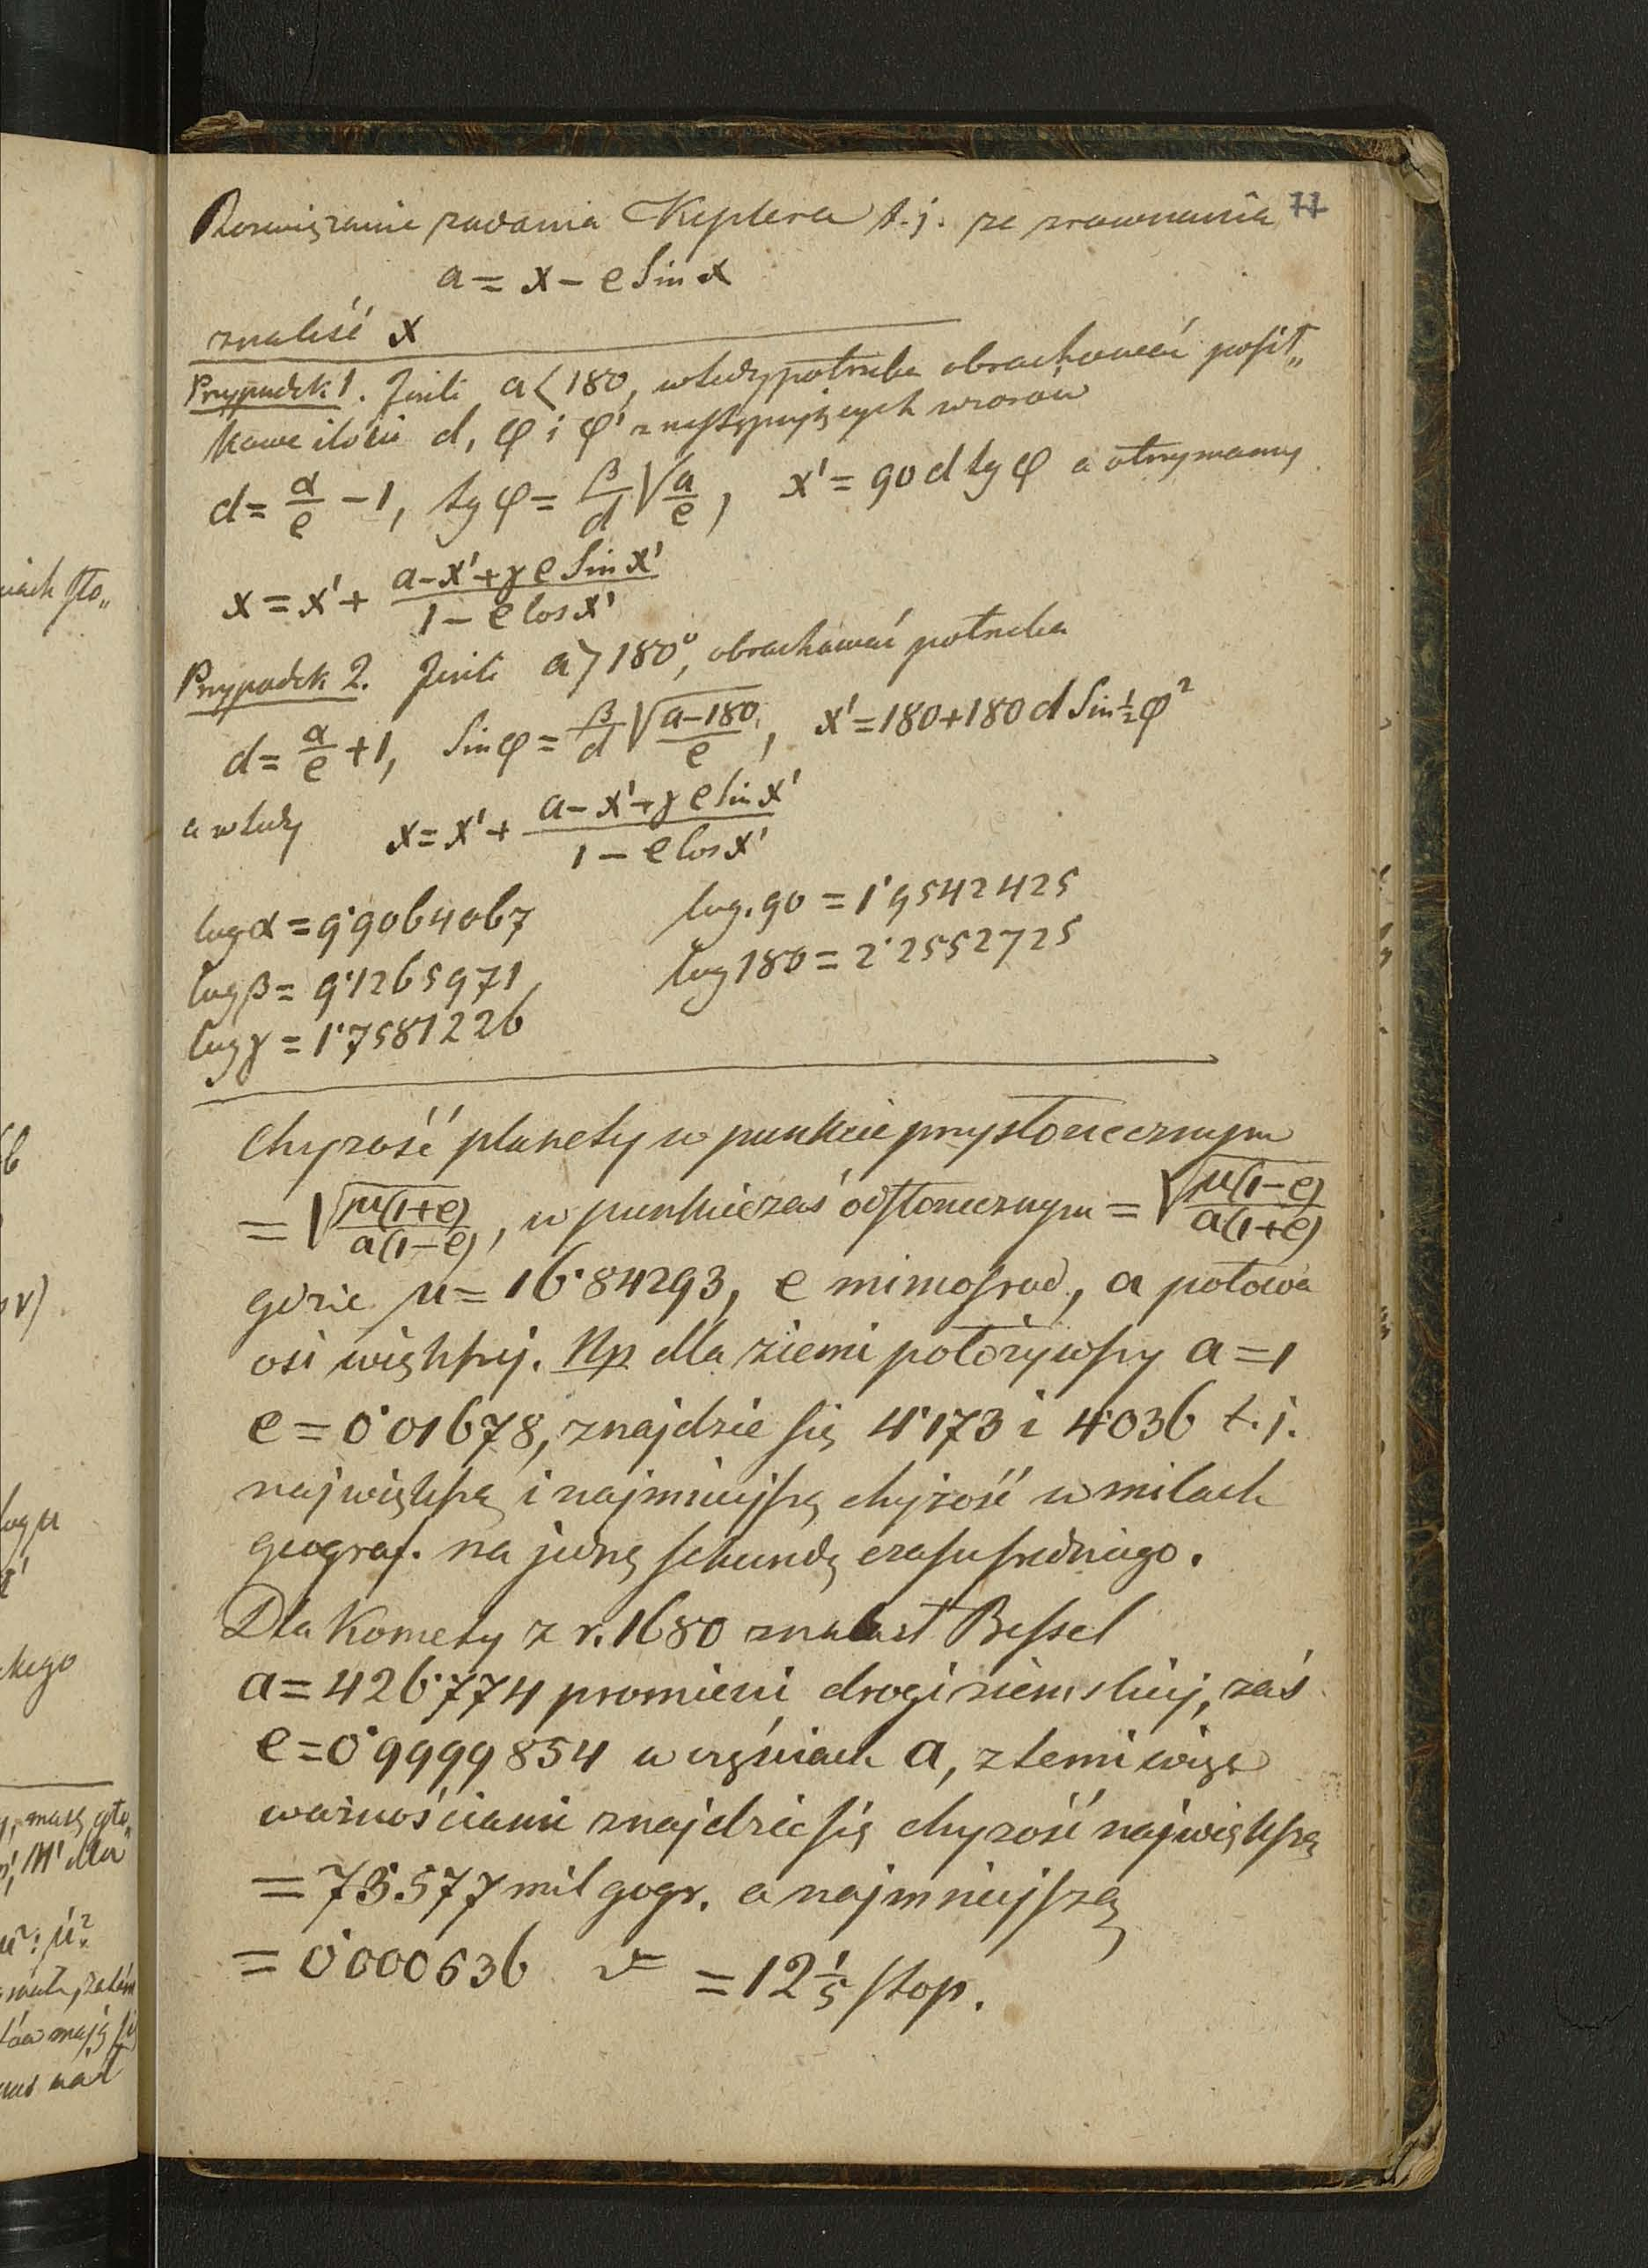 77
Rozwiązanie zadania Keplera t.j. ze zrównania
a = x – e Sin x
znaleść x
Przypadek 1. Jeśli a < 180, wtedy potrzeba obrachować posił„
kowe ilości d, φ i φ' z następujących wzorów
d = α/e – 1, tg φ = β/d √(a/e), x' = 90 d tg φ a otrzymamy
x = x' + (a – x' + γ e Sin x')/(1 – e Cos x')
Przypadek 2. Jeśli a > 180°, obrachować potrzeba
d = α/e + 1, Sin φ = β/d √((a–180)/e), x' = 180 + 180 d Sin ½ φ²
a wtedy x = x' + (a – x' + γ e Sin x')/(1 – e Cos x')
log α = 9·9064067 log. 90 = 1·9542425
log β = 9·1265971 log 180 = 2·2552725
log γ = 1·7581226
Chyżość planety w punkcie przysłonecznym
= √(μ(1+e)/a(1–e)), w punkcie zaś odsłonecznym = √(μ(1–e)/a(1+e))
gdzie μ = 16·84293, e mimosrod, a połowa
osi większej. Np dla ziemi położywszy a = 1
e = 0·01678, znajdzie się 4·173 i 4·036 t.j.
największą i najmniejszą chyżość w milach
geograf. na jedną sekundę czasu średniego.
Dla Komety z r. 1680 znalazł Bessel
a = 426·774 promieni drogi ziemskiej, zaś
e = 0·9999854 w częściach a, z temi więc
ważnościami znajdzie się chyżość największą
= 73·577 mil gogr. a najmniejszą
= 0·000636 = 12 1/5 stop.